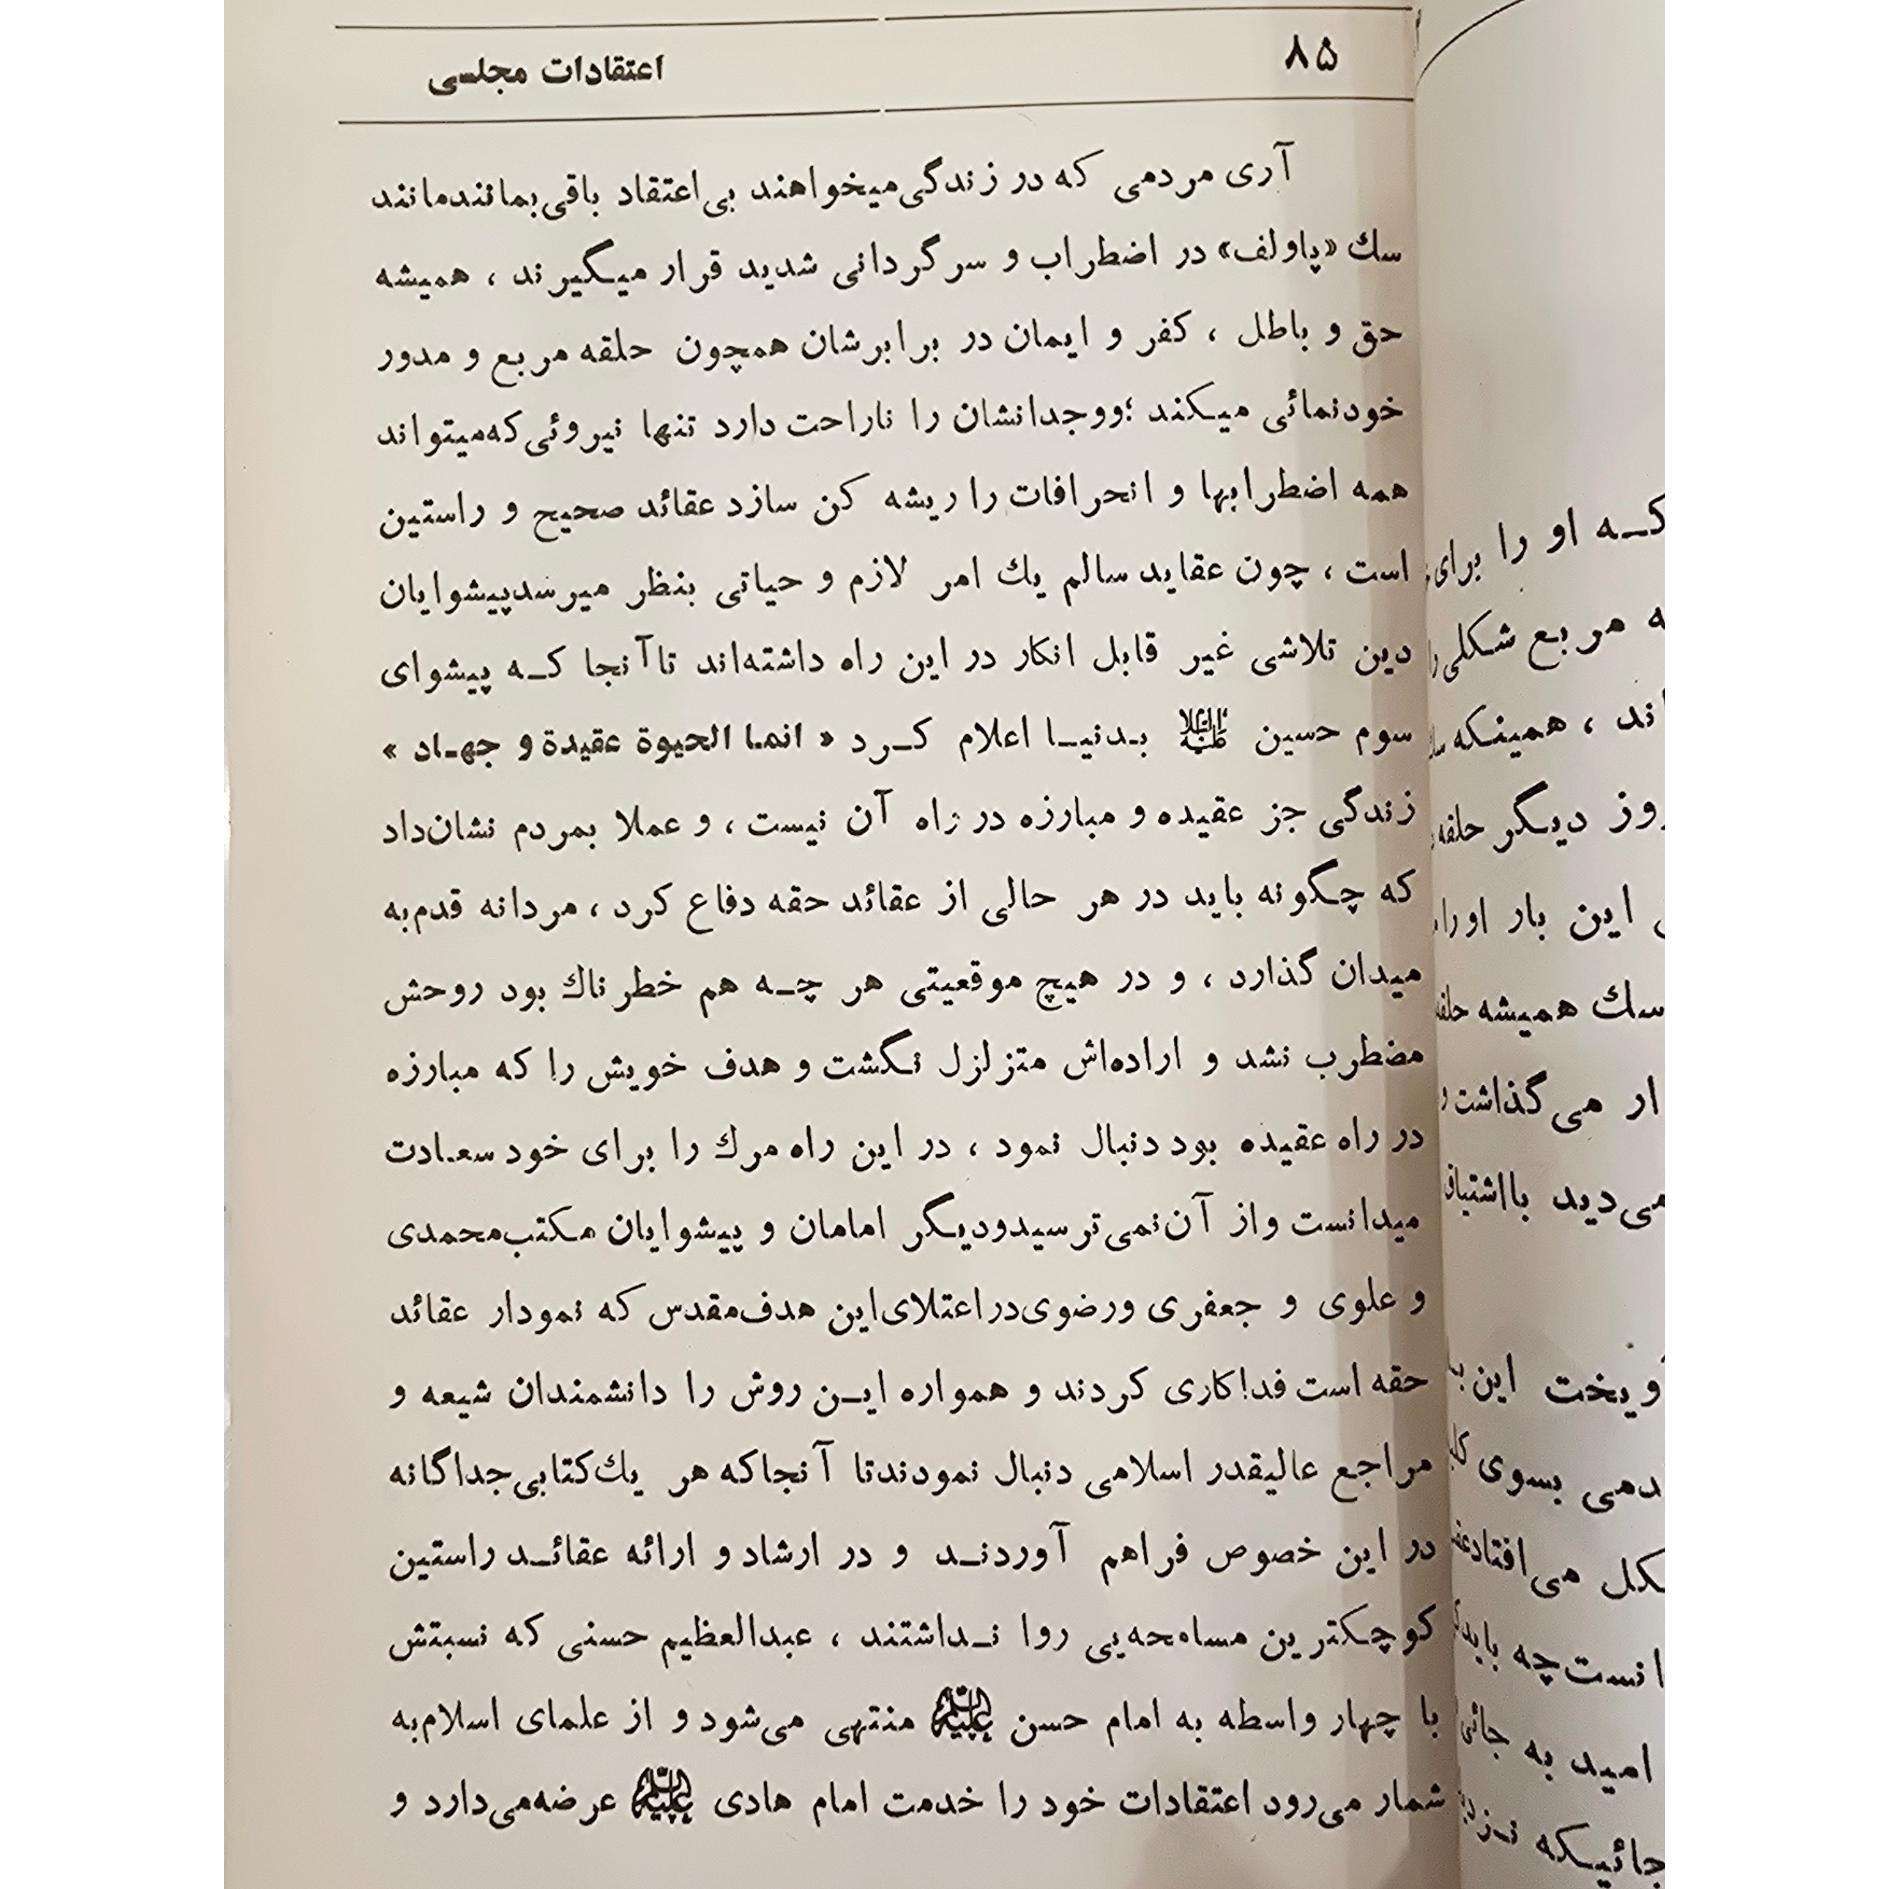 ۸۵
اعتقادات مجلسی
آری مردمی که در زندگی‌میخواهند بی‌اعتقاد باقی‌بمانندمانند
سك «پاولف» در اضطراب و سرگردانی شدید قرار میگیرند ، همیشه
حق و باطل ، کفر و ایمان در برابرشان همچون حلقه مربع و مدور
خودنمائی میکند ؛ووجدانشان را ناراحت دارد تنها نیروئی‌که‌میتواند
همه اضطرابها و انحرافات را ریشه کن سازد عقائد صحیح و راستین
است ، چون عقاید سالم یك امر لازم و حیاتی بنظر میرسدپیشوایان
دین تلاشی غیر قابل انکار در این راه داشته‌اند تاآنجا که پیشوای
سوم حسین علیه‌السلام بدنیا اعلام کرد « انما الحیوة عقیدة و جهاد »
زندگی جز عقیده و مبارزه در راه آن نیست ، و عملا بمردم نشان‌داد
که چگونه باید در هر حالی از عقائد حقه دفاع کرد ، مردانه قدم‌به
میدان گذارد ، و در هیچ موقعیتی هر چه هم خطرناك بود روحش
مضطرب نشد و اراده‌اش متزلزل نگشت و هدف خویش را که مبارزه
در راه عقیده بود دنبال نمود ، در این راه مرك را برای خود سعادت
میدانست و از آن‌نمی‌ترسیدودیگر امامان و پیشوایان مکتب‌محمدی
و علوی و جعفری ورضوی‌دراعتلای‌این هدف‌مقدس که نمودار عقائد
حقه است فداکاری کردند و همواره این روش را دانشمندان شیعه و
مراجع عالیقدر اسلامی دنبال نمودندتا آنجاکه هر یك‌کتابی‌جداگانه
در این خصوص فراهم آوردند و در ارشاد و ارائه عقائد راستین
کوچکترین مسامحه‌یی روا نداشتند ، عبدالعظیم حسنی که نسبتش
با چهار واسطه به امام حسن علیه‌السلام منتهی می‌شود و از علمای اسلام‌به
شمار می‌رود اعتقادات خود را خدمت امام هادی علیه‌السلام عرضه‌می‌دارد و
که او را برای
مربع شکلی
، همینکه
دیگر حلقه
این بار اورا
سك همیشه
می‌گذاشت و
می‌دید
این
بسوی
می‌افتاد
چه باید
امید به
جائیکه